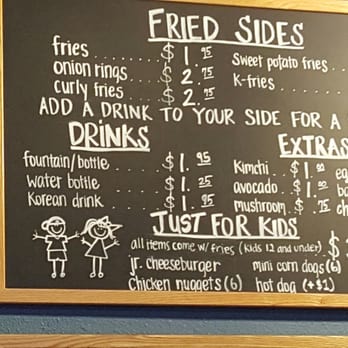 FRIED SIDES
fries . . . . . . . . $1.95
onion rings . . . . $2.75
curly fries . . . . $2.75
Sweet potato fries . . . .
K-fries . . . . . . .
ADD A DRINK TO YOUR SIDE FOR A
DRINKS
fountain/bottle . . . . $1.95
water bottle . . . . $1.25
Korean drink . . . . $1.95
EXTRAS
Kimchi . . $1.00
avocado . $1.00
mushroom . $.75
JUST FOR KIDS
all items come w/ fries (kids 12 and under) $
jr. cheeseburger
mini corn dogs (6)
Chicken nuggets (6)
hot dog (+$1)